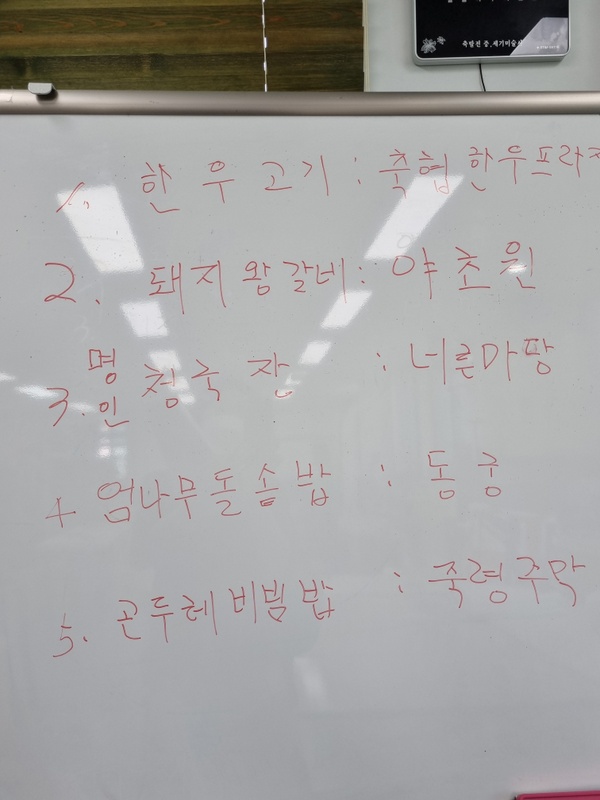 축 발전 중, 세기미술사
1. 한우고기 : 축협한우프라자
2. 돼지왕갈네 : 야초원
3. 명인 청국장 : 너른마당
4 엄나무돌솥밥 : 동궁
5. 곤두레비빔밥 : 죽령주막